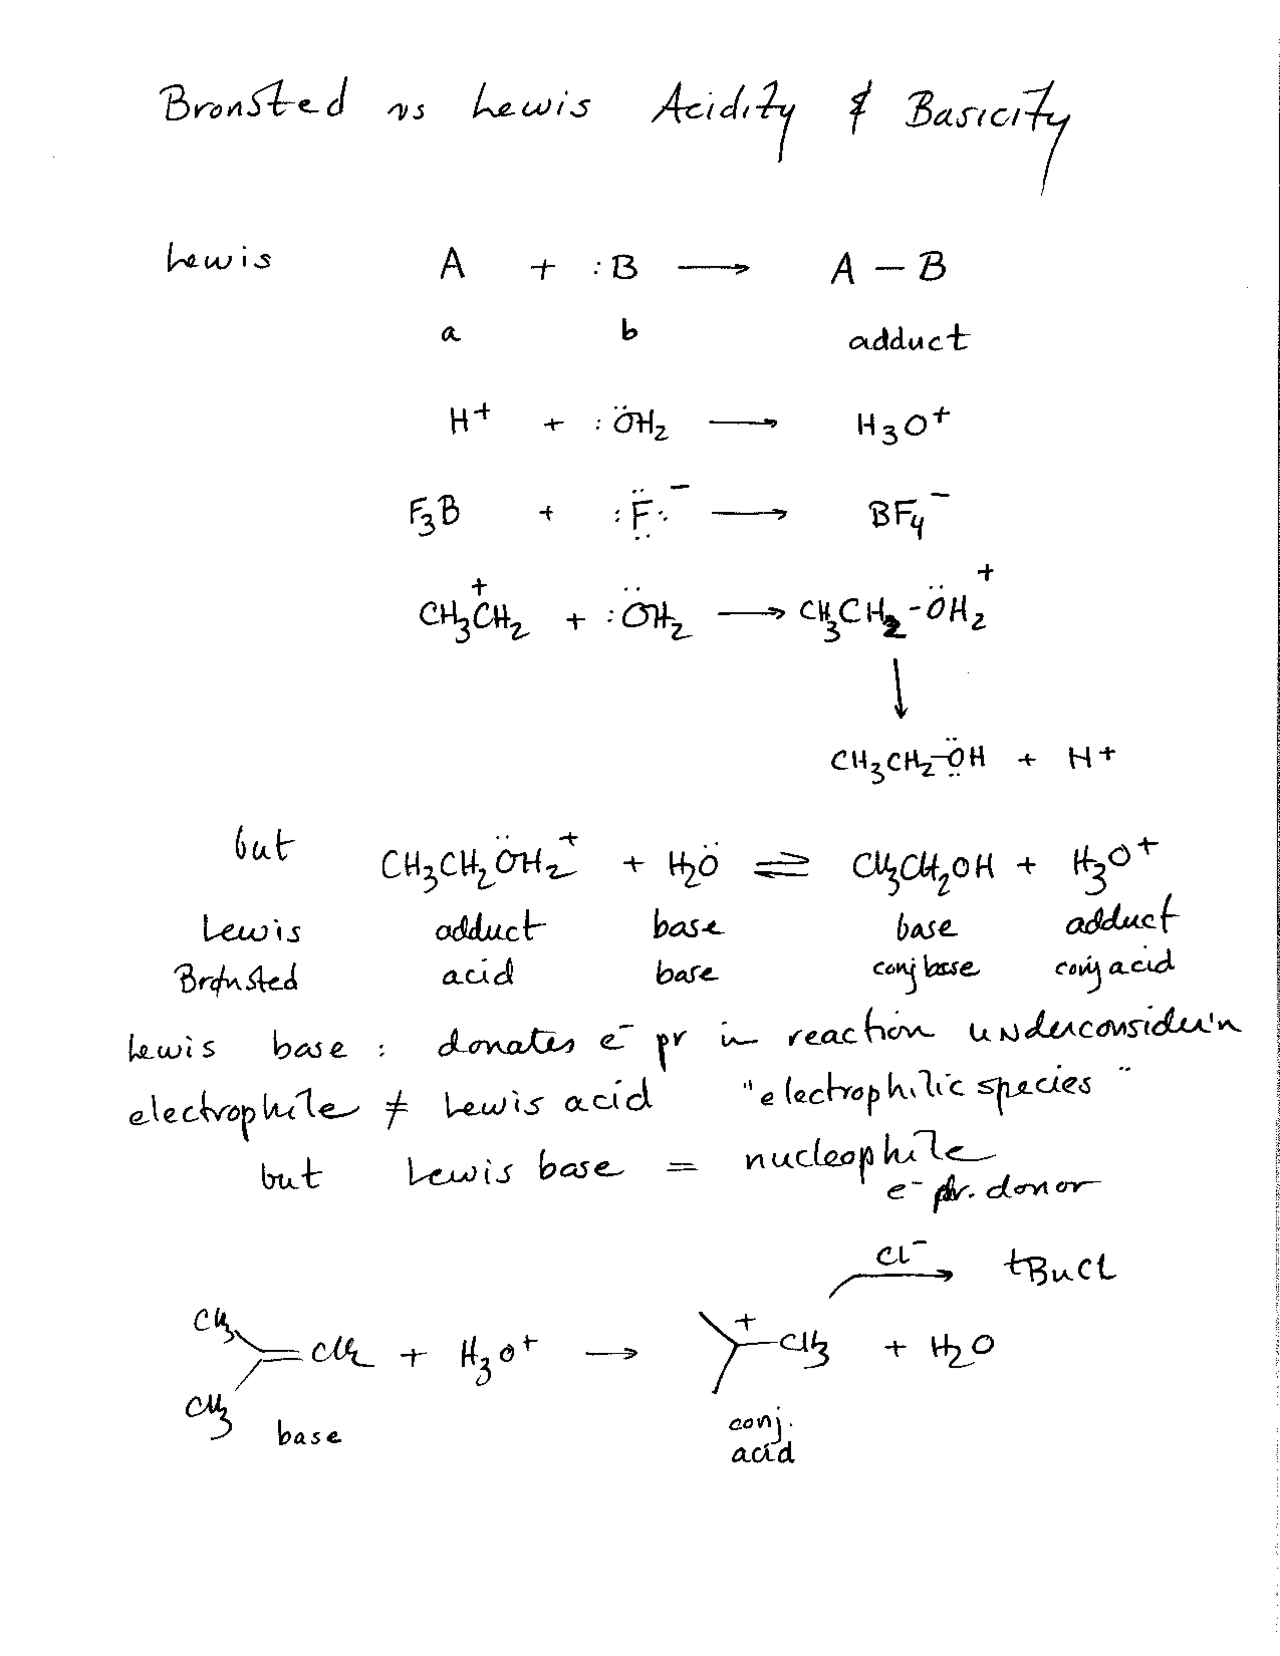 Bronsted vs Lewis Acidity & Basicity
Lewis A + :B ⟶ A – B
a b adduct
H+ + :ÖH₂ ⟶ H₃O+
F₃B + :F̈:⁻ ⟶ BF₄⁻
CH₃C⁺H₂ + :ÖH₂ ⟶ CH₃CH₂-ÖH₂⁺
↓
CH₃CH₂–ÖH + H+
but CH₃CH₂ÖH₂⁺ + H₂Ö ⇌ CH₃CH₂OH + H₃O+
Lewis adduct base base adduct
Brønsted acid base conj base conj acid
Lewis base : donates e⁻ pr in reaction underconsider'n
electrophile ≠ Lewis acid "electrophilic species"
but Lewis base = nucleophile
e⁻ pr. donor
Cl⁻ ⟶ tBuCl
CH₃
=CH₂ + H₃O+ ⟶ +–CH₃ + H₂O
CH₃
base conj.
acid